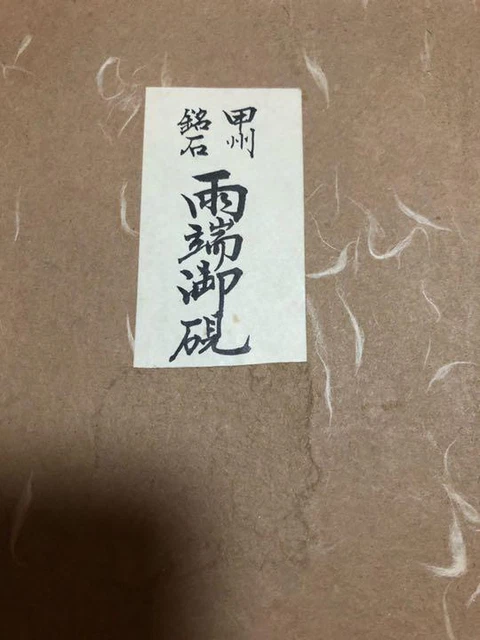 甲州
銘石
雨端御硯